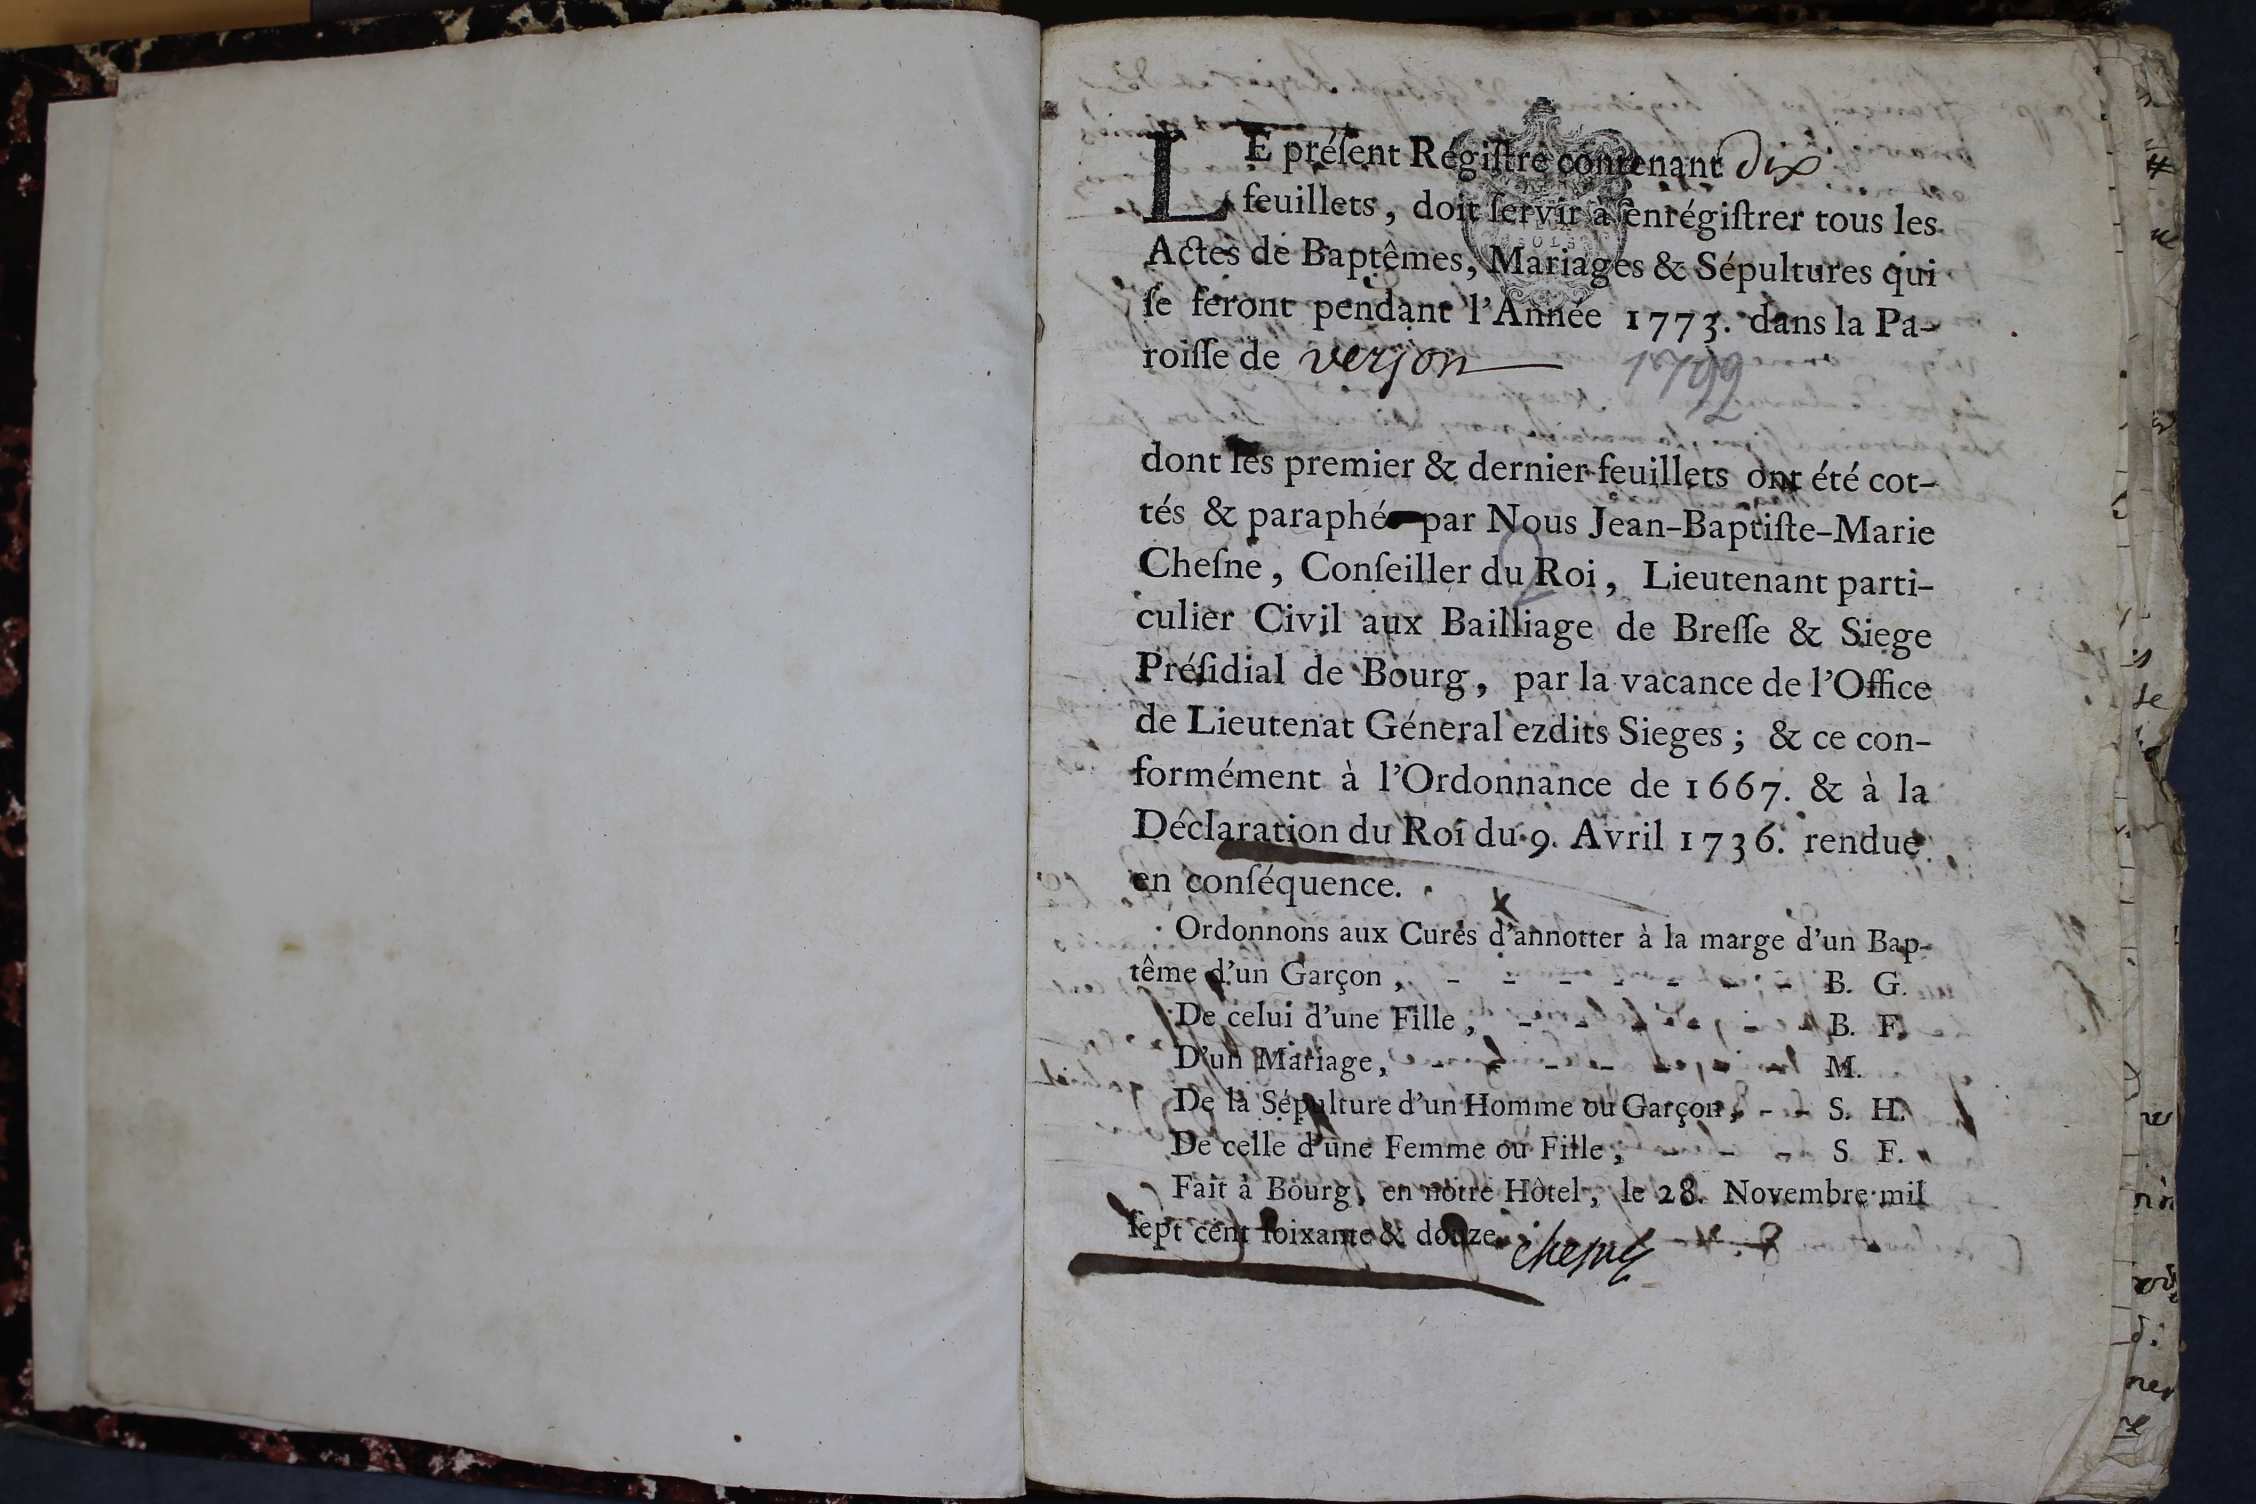 LE préſent Régiſtre contenant dix
feuillets, doit ſervir à enrégiſtrer tous les
Actes de Baptêmes, Mariages & Sépultures qui
ſe feront pendant l'Année 1773. dans la Pa-
roiſſe de verjon
1792
dont les premier & dernier feuillets ont été cot-
tés & paraphé par Nous Jean-Baptiſte-Marie
Cheſne, Conſeiller du Roi, Lieutenant parti-
2
culier Civil aux Bailliage de Breſſe & Siege
Préſidial de Bourg, par la vacance de l'Office
de Lieutenat Géneral ezdits Sieges; & ce con-
formément à l'Ordonnance de 1667. & à la
Déclaration du Roi du 9. Avril 1736. rendue
en conſéquence.
Ordonnons aux Curés d'annotter à la marge d'un Bap-
tême d'un Garçon, - - - - - - - B. G.
De celui d'une Fille, - - - - - - B. F.
D'un Mariage, - - - - - - - M.
De la Sépulture d'un Homme ou Garçon, - - S. H.
De celle d'une Femme ou Fille, - - - S. F.
Fait à Bourg, en notre Hôtel, le 28. Novembre mil
ſept cent ſoixante & douze. chesne